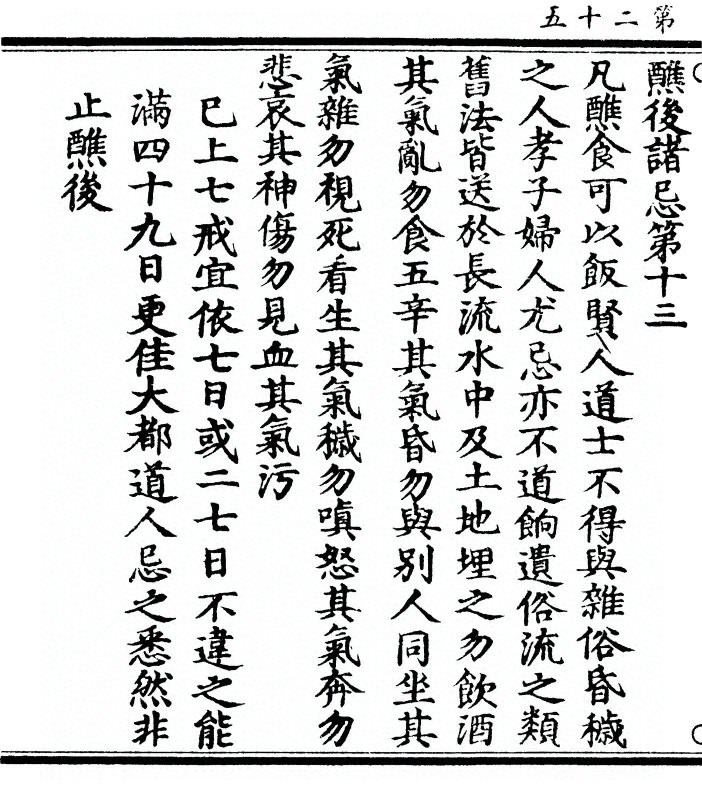 第二十五
醮後諸忌第十三
凡醮食可以飯賢人道士不得與雜俗昏穢
之人孝子婦人尤忌亦不道餉遺俗流之類
舊法皆送於長流水中及土地埋之勿飲酒
其氣亂勿食五辛其氣昏勿與別人同坐其
氣雜勿視死看生其氣穢勿嗔怒其氣奔勿
悲哀其神傷勿見血其氣污
已上七戒宜依七日或二七日不違之能
滿四十九日更佳大都道人忌之悉然非
止醮後